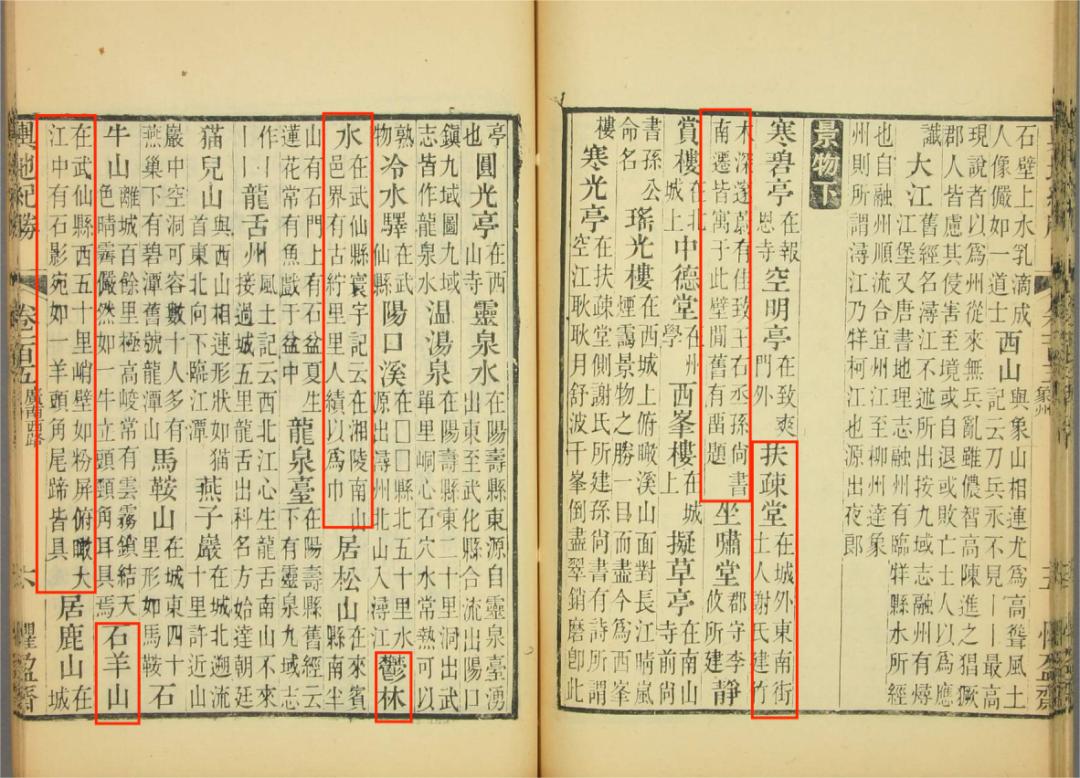 石壁上水乳滴成人像儼如一道士 西山 與象山相連尤爲高聳風土記云刀兵永不見丨丨最高
現說者以爲州從來無兵亂雖儂智高陳進之猖獗郡人皆慮其侵害至境或自退或敗亡士人以爲應
讖 大江 舊經名潯江不述所出按九域志融州有潯江堡又唐書地理志融州有臨牂縣水所經
也自融州順流合宜州江至柳州江達象州則所謂潯江乃牂柯江也源出夜郎
景物下
寒碧亭 在報恩寺 空明亭 在致爽門外 扶疎堂 在城外東南街士人謝氏建竹
木深邃蔚有佳致王石丞孫尚書南遷皆寓于此壁間舊有畱題 坐嘯堂 郡守李伩所建 靜
賞樓 在北城上 中德堂 在州學 西峯樓 在城上 擬草亭 在南山寺前尚
書孫公命名 瑤光樓 在西城上俯瞰溪山面對長江晴嵐煙靄景物之勝一目而盡今爲西峯
樓 寒光亭 在扶疎堂側謝氏所建孫尚書有詩所謂空江耿耿月舒波千峯倒盡翠銷磨卽此
亭也 圓光亭 在西山寺 靈泉水 在陽壽縣東源自靈泉臺湧出東至武化縣合流出陽口
鎮九域圖九域志皆作龍泉水 温湯泉 在陽壽縣東二十里洞出武單里峒心石穴水常熱可以
熟物 冷水驛 在武仙縣 陽口溪 在□□縣北五十里水源出潯州北山入潯江 鬱林
水 在武仙縣寰宇記云在湘陵南山邑界有古紵里里人績以爲巾 居松山 在來賓縣南半
山有石門上有石盆夏生蓮花常有魚戲于盆中 龍泉臺 在陽壽縣舊經云下有靈泉九域志
作丨丨 龍舌州 風土記云西北江心生龍舌南山不來接過城五里龍舌出科名方始達朝廷
猫兒山 與西山相連形狀如猫首東北向下臨江潭 燕子巖 在城北遡流十里許近山
巖中空洞可容數十人多有燕巢下有碧潭舊號龍潭山 馬鞍山 在城東四十里形如馬鞍 石
牛山 離城百餘里極高峻常有雲霧鎖結天色晴霽儼然如一牛立頭角耳具焉 石羊山
在武仙縣西五十里峭壁如粉屏俯瞰大江中有石影宛如一羊頭角尾蹄皆具 居鹿山 在城
輿地紀勝 卷一百五 廣南西路 六 懼盈齋